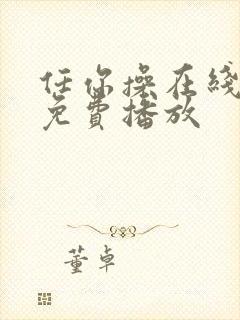 任你操在线
免费播放
董卓